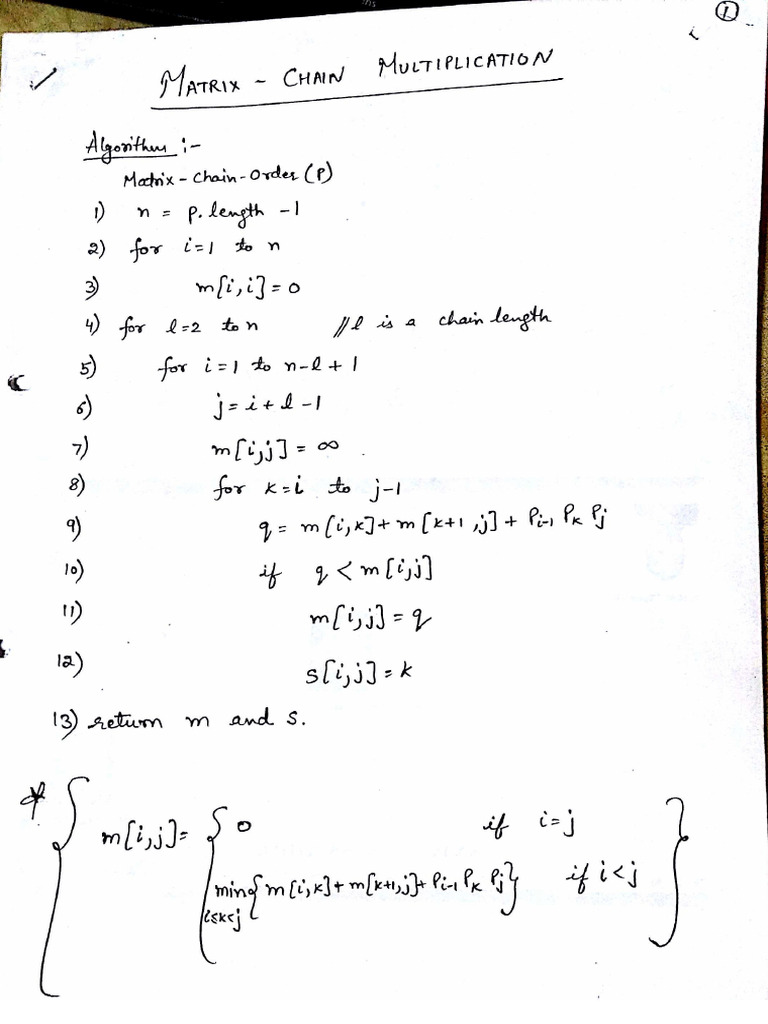 ①
MATRIX - CHAIN MULTIPLICATION
Algorithm :-
Matrix - Chain - Order (P)
1) n = p. length - 1
2) for i=1 to n
3) m[i,i] = 0
4) for l=2 to n //l is a chain length
5) for i=1 to n-l+1
6) j = i+l-1
7) m[i,j] = ∞
8) for k=i to j-1
9) q = m[i,k] + m[k+1,j] + Pi-1 Pk Pj
10) if q < m[i,j]
11) m[i,j] = q
12) s[i,j] = k
13) return m and s.
* { m[i,j] = { 0 if i=j
min{ m[i,k] + m[k+1,j] + Pi-1 Pk Pj} if i<j }
i≤k<j